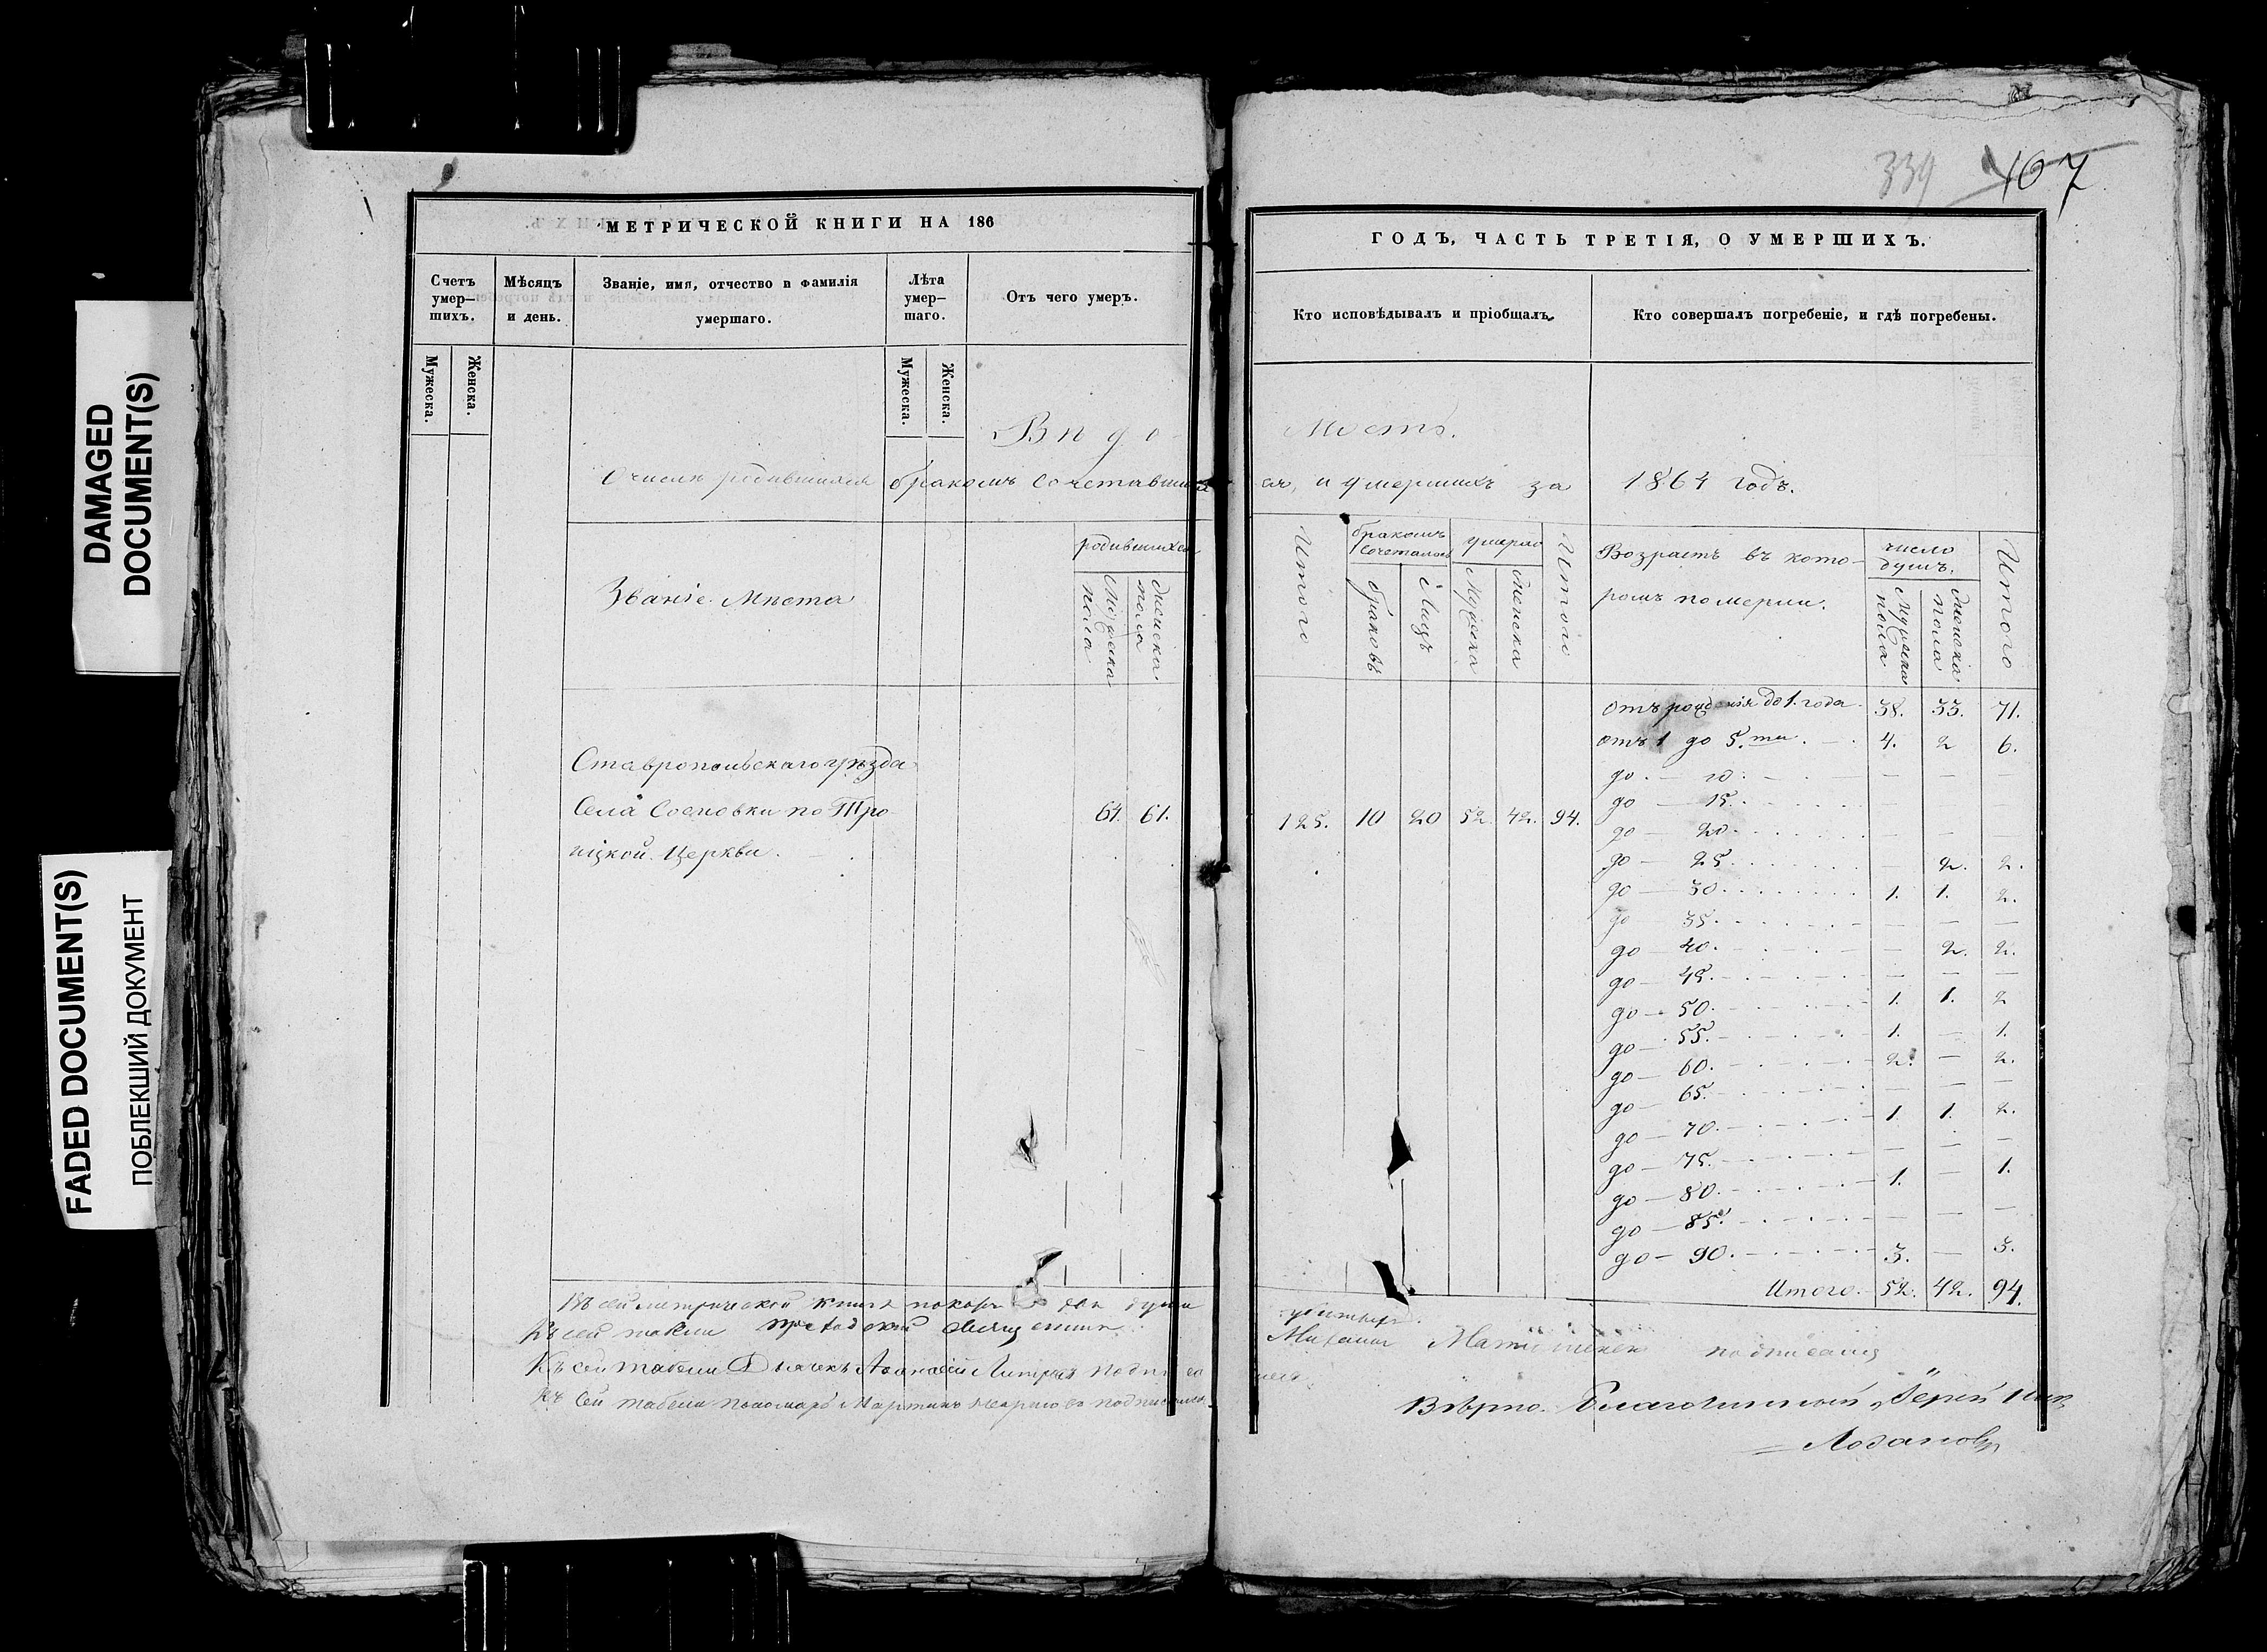 DAMAGED
DOCUMENT(S)
FADED DOCUMENT(S)
ПОБЛЕКШИЙ ДОКУМЕНТ
МЕТРИЧЕСКОЙ КНИГИ НА 186
Счетъ умер—шихъ.
Мѣсяцъ и день.
Званіе, имя, отчество и фамилія умершаго.
Лѣта умер—шаго.
Отъ чего умеръ.
Мужеска. Женска.
Мужеска. Женска.
Вѣдо-
О числѣ родившихся бракомъ сочетавших
Званіе Мѣста
родившихся
Мужеска пола
женска пола
Ставропольскаго уѣзда
Села Сосновки по Тро-
ицкой Церкви.
64. 61.
Въ сей метрической книгѣ
Къ сей табели Приходскій Священникъ
Къ сей табели Дьячекъ
Къ сей табели пономарь Мартинъ
339 107
ГОДЪ, ЧАСТЬ ТРЕТІЯ, О УМЕРШИХЪ.
Кто исповѣдывалъ и пріобщалъ.
Кто совершалъ погребеніе, и гдѣ погребены.
мость.
ся, и умершихъ за 1864 годъ.
Итого
бракомъ сочеталось
браковъ
Лицъ
умерло
Мужеска
женска
Итого
Возрастъ въ кото-
ромъ померли.
число душъ.
Мужеска пола
женска пола
Итого
125. 10 20 52. 42. 94.
отъ рожденія до 1. года 38. 33. 71.
отъ 1 до 5.ти 4. 2 6.
до — 10. — — —
до — 15.
до — 20. — —
до — 25. 2. 2.
до — 30. 1. 1. 2.
до — 35. — — —
до — 40. — 2. 2.
до — 45. — — —
до — 50. 1. 1. 2
до — 55. 1. — 1.
до — 60. 2. — 2.
до — 65. — — —
до — 70. 1. 1. 2.
до — 75. — — —
до — 80. 1. — 1.
до — 85. — — —
до — 90. 3. — 3.
Итого. 52. 42. 94.
Михаилъ
Вѣрно. Благочинный, Іерей